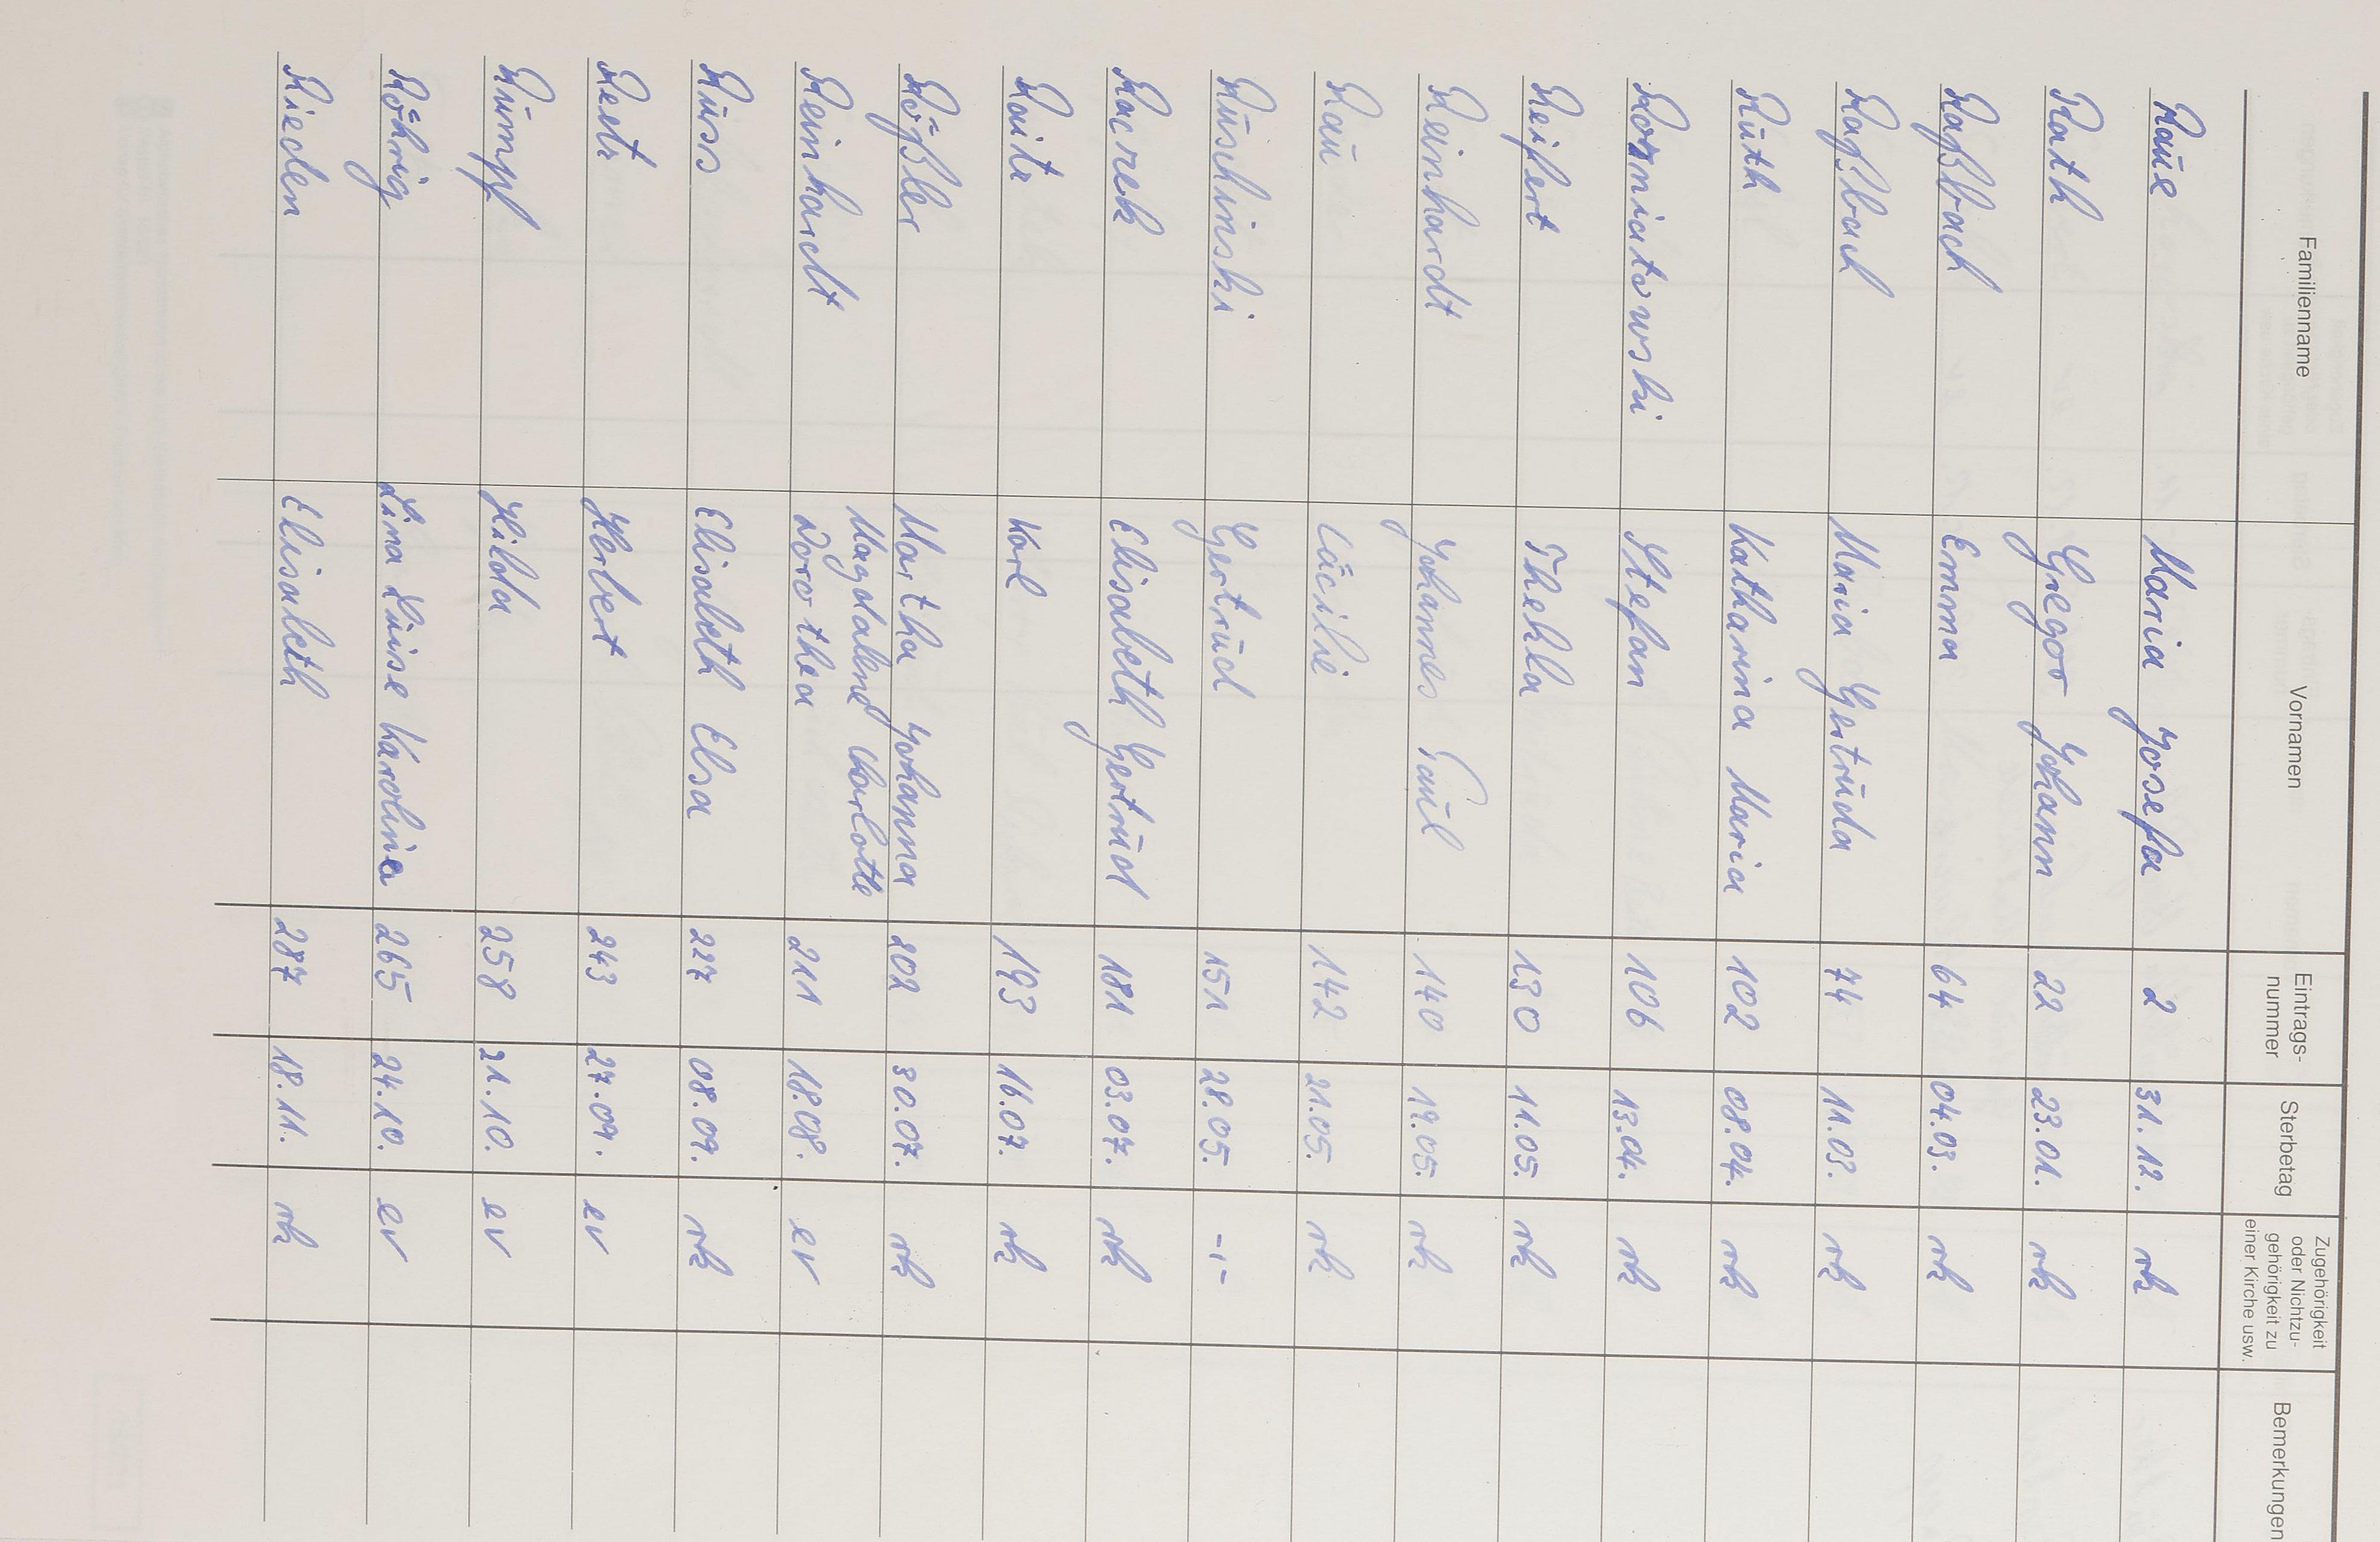 Familienname Vornamen Eintrags- nummer Sterbetag Zugehörigkeit oder Nichtzu- gehörigkeit zu einer Kirche usw. Bemerkungen
Raue Maria Josefa 2 31.12. rk
Rath Gregor Johann 22 23.01. rk
Raßbach Emma 64 04.03. rk
Raßbach Maria Gertruda 74 11.03. rk
Ruth Katharina Maria 102 08.04. rk
Romniatowski Stefan 106 13.04. rk
Reifert Thekla 130 11.05. rk
Reinhardt Johannes Paul 140 19.05. rk
Rau Cäcilie 142 21.05. rk
Ruschinski Gertrud 151 28.05. -,-
Raczek Elisabeth Gertrud 181 03.07. rk
Raitz Karl 193 16.07. rk
Rößler Martha Johanna 202 30.07. rk
Magdalena Charlotte
Reinhardt Dorothea 211 18.08. ev
Russ Elisabeth Elsa 227 08.09. rk
Reetz Herbert 243 27.09. ev
Rumpf Hilda 258 21.10. ev
Röhrig Lina Luise Karolina 265 24.10. ev
Rieden Elisabeth 287 18.11. rk